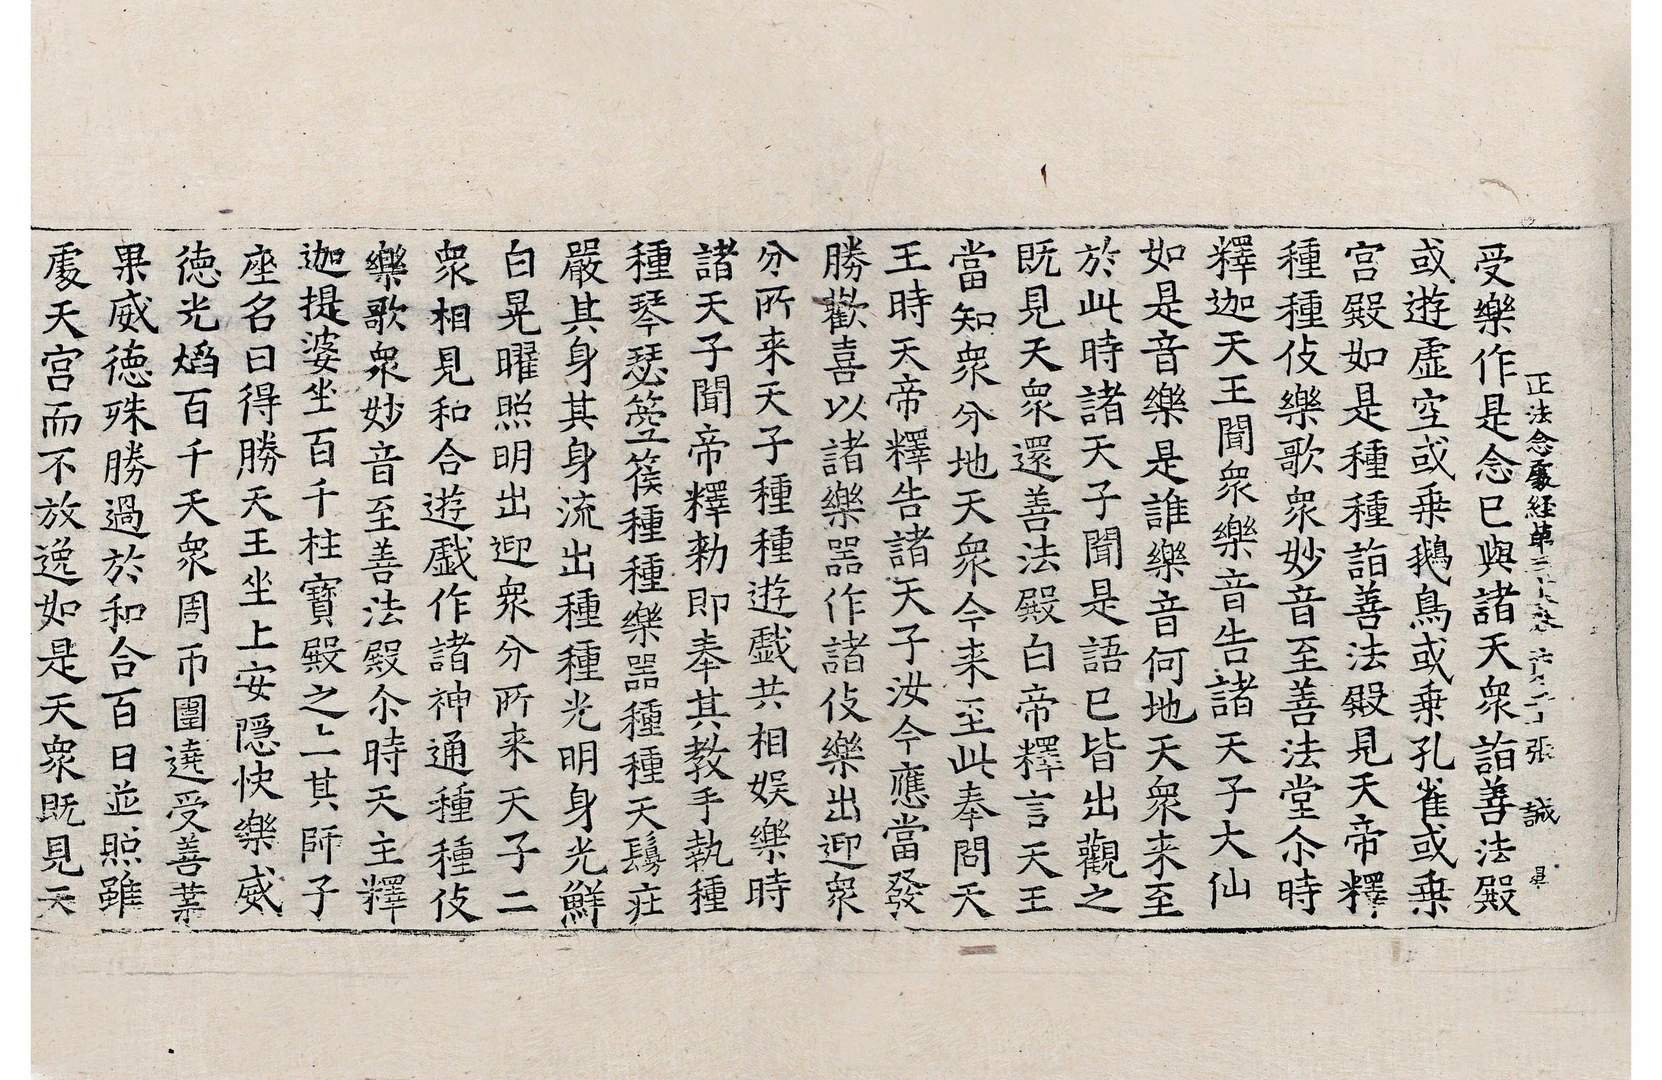 正法念處經第三 張 誠
受樂作是念已與諸天衆詣善法殿
或遊虛空或乗鵝鳥或乗孔雀或乗
宮殿如是種種詣善法殿見天帝釋
種種伎樂歌衆妙音至善法堂尒時
釋迦天王聞衆樂音告諸天子大仙
如是音樂是誰樂音何地天衆来至
於此時諸天子聞是語已皆出觀之
既見天衆還善法殿白帝釋言天王
當知衆分地天衆今来至此奉問天
王時天帝釋告諸天子汝今應當發
勝歡喜以諸樂器作諸伎樂出迎衆
分所来天子種種遊戲共相娛樂時
諸天子聞帝釋勑即奉其教手執種
種琴瑟箜篌種種樂器種種天鬘莊
嚴其身其身流出種種光明身光鮮
白晃曜照明出迎衆分所来天子二
衆相見和合遊戲作諸神通種種伎
樂歌衆妙音至善法殿尒時天主釋
迦提婆坐百千柱寶殿之上其師子
座名曰得勝天王坐上安隱快樂威
徳光燄百千天衆周帀圍遶受善業
果威徳殊勝過於和合百日並照雖
處天宮而不放逸如是天衆既見天